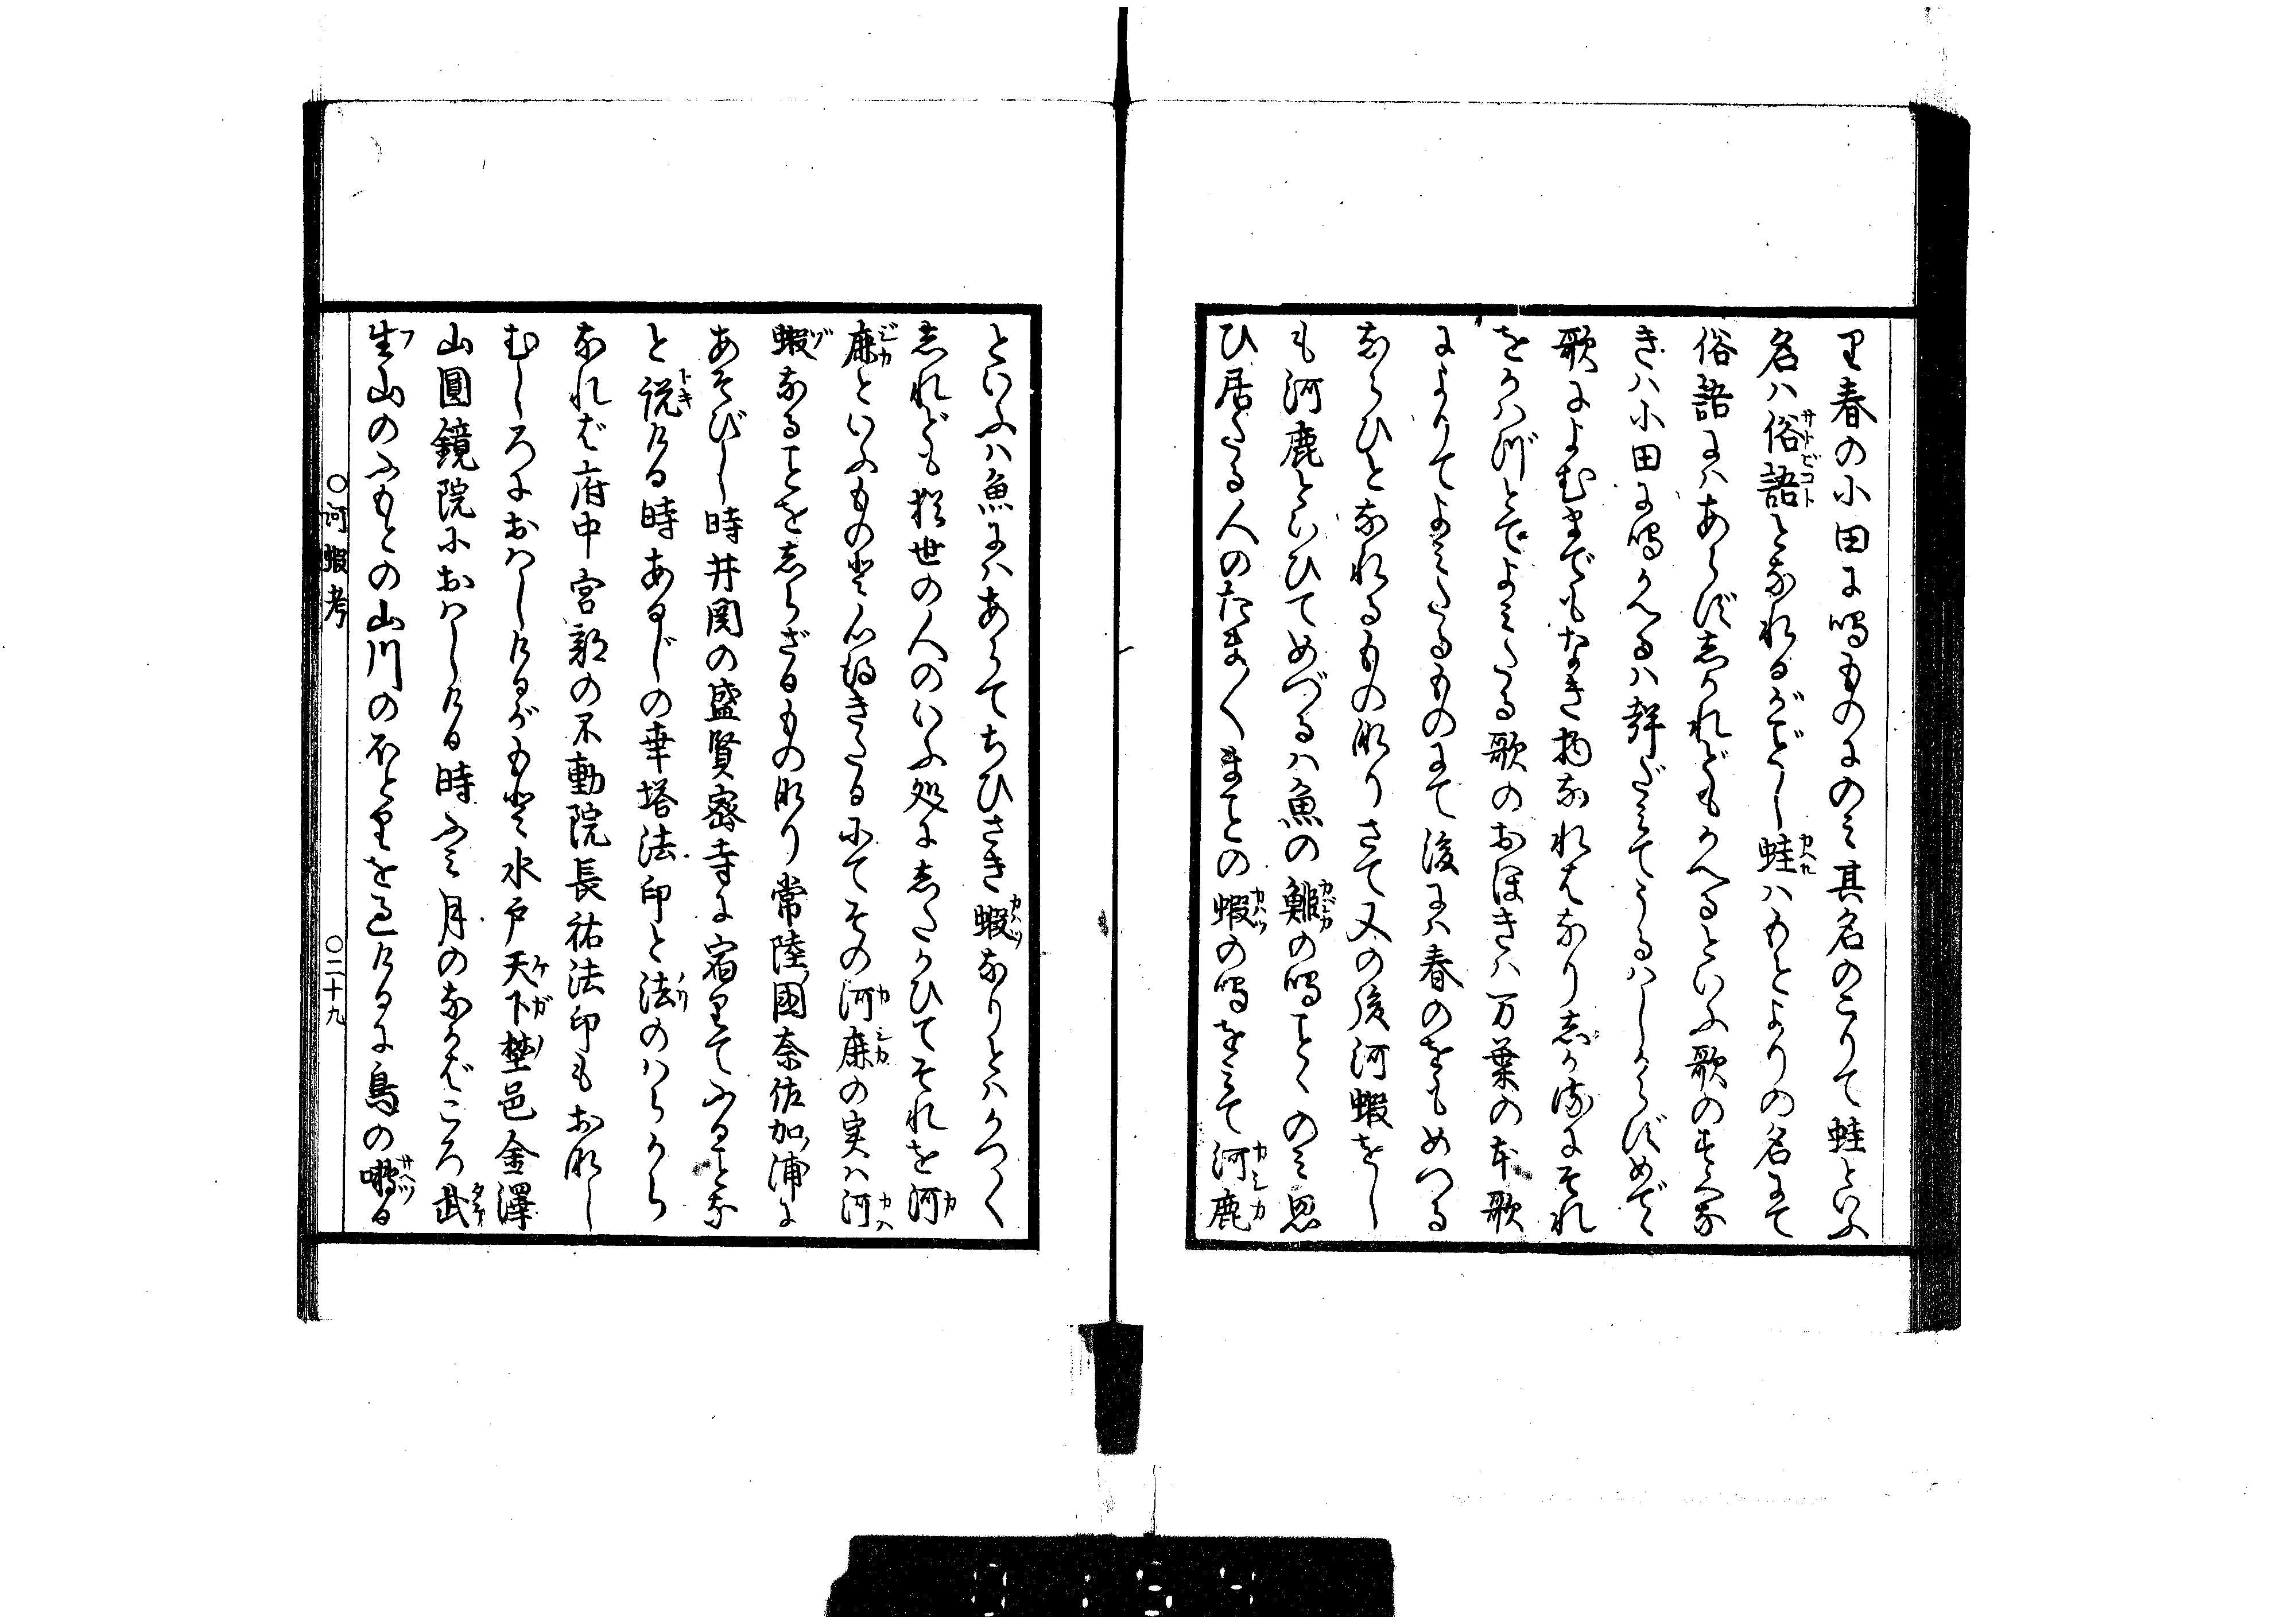 里春の小田に鳴ものにのミ其名のこりて蛙といふ
名ハ俗語となれるがごとし蛙ハもとよりの名にて
俗語にハあらずしかれどもかへるといふ歌のすくな
きハ小田に鳴かへるハ声だミてうるハしからずめでた
歌によむまでもなき物なれバなりしかるにそれ
をかハづとてよミたる歌のおほきハ万葉の本歌
によりてよミたるものにて後にハ春のをもめづる
ならひとなれるもの也さて又の後河蝦をし
も河鹿といひてめづるハ魚の鰍の鳴ことゝのミ思
ひ居たる人のたま〱まことの蝦の鳴をミて河鹿
といふハ魚にハあらでちひさき蝦なりとハかつ〱
しれども猶世の人のいふ処にしたがひてそれを河
鹿といふものと心得きたるにてその河鹿の実ハ河
蝦なることをしらざるもの也常陸國奈佐加浦に
あそびし時井関の盛賢密寺に宿りてふることな
と説ける時あるじの華塔法印と法のはらから
なれバ府中宮部の不動院長祐法印もおなし
むしろにおはしけるがもと水戸天下埜邑金澤
山圓鏡院におはしける時ふミ月のなかバころ武
生山のふもとの山川のほとりを過けるに鳥の囀る
〇河蝦考
〇二十九